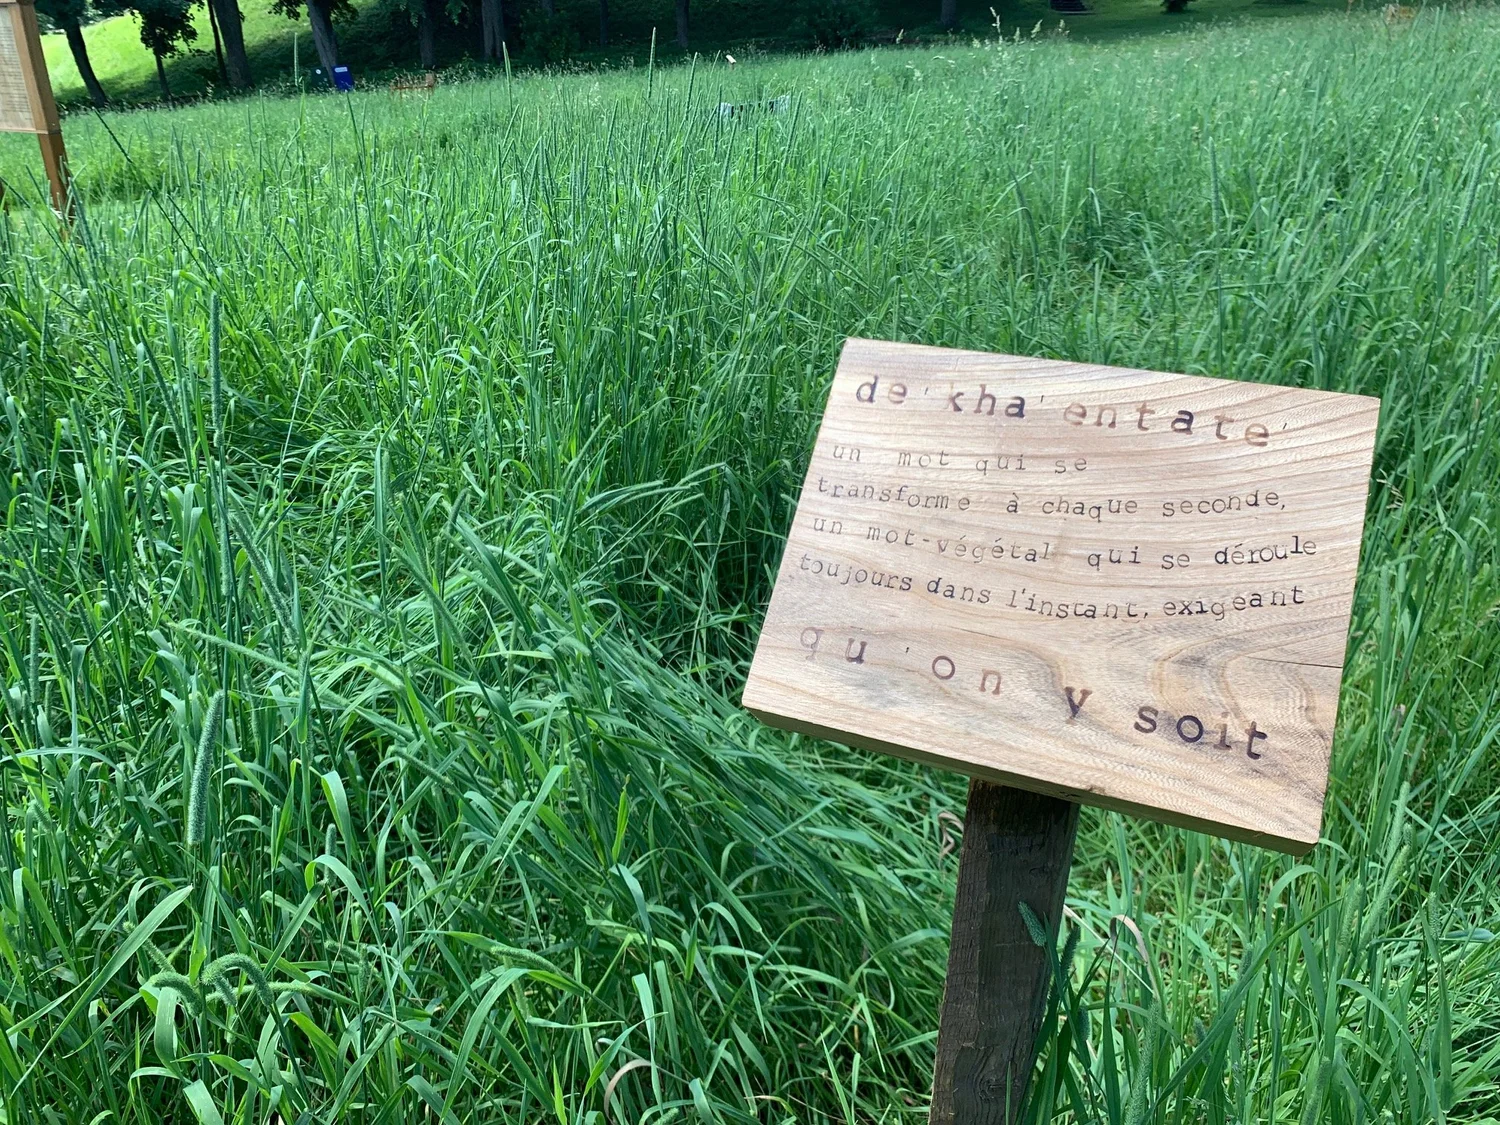 de'kha'entate'
un mot qui se
transforme à chaque seconde,
un mot-végétal qui se déroule
toujours dans l'instant, exigeant
qu'on y soit